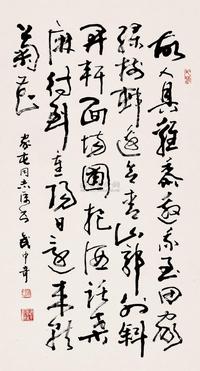 故人具雞黍邀我至田家
綠樹邨邊合青山郭外斜
開軒面場圃把酒話桑
麻待到重陽日還來就
菊花
家屯同志属書 武中奇